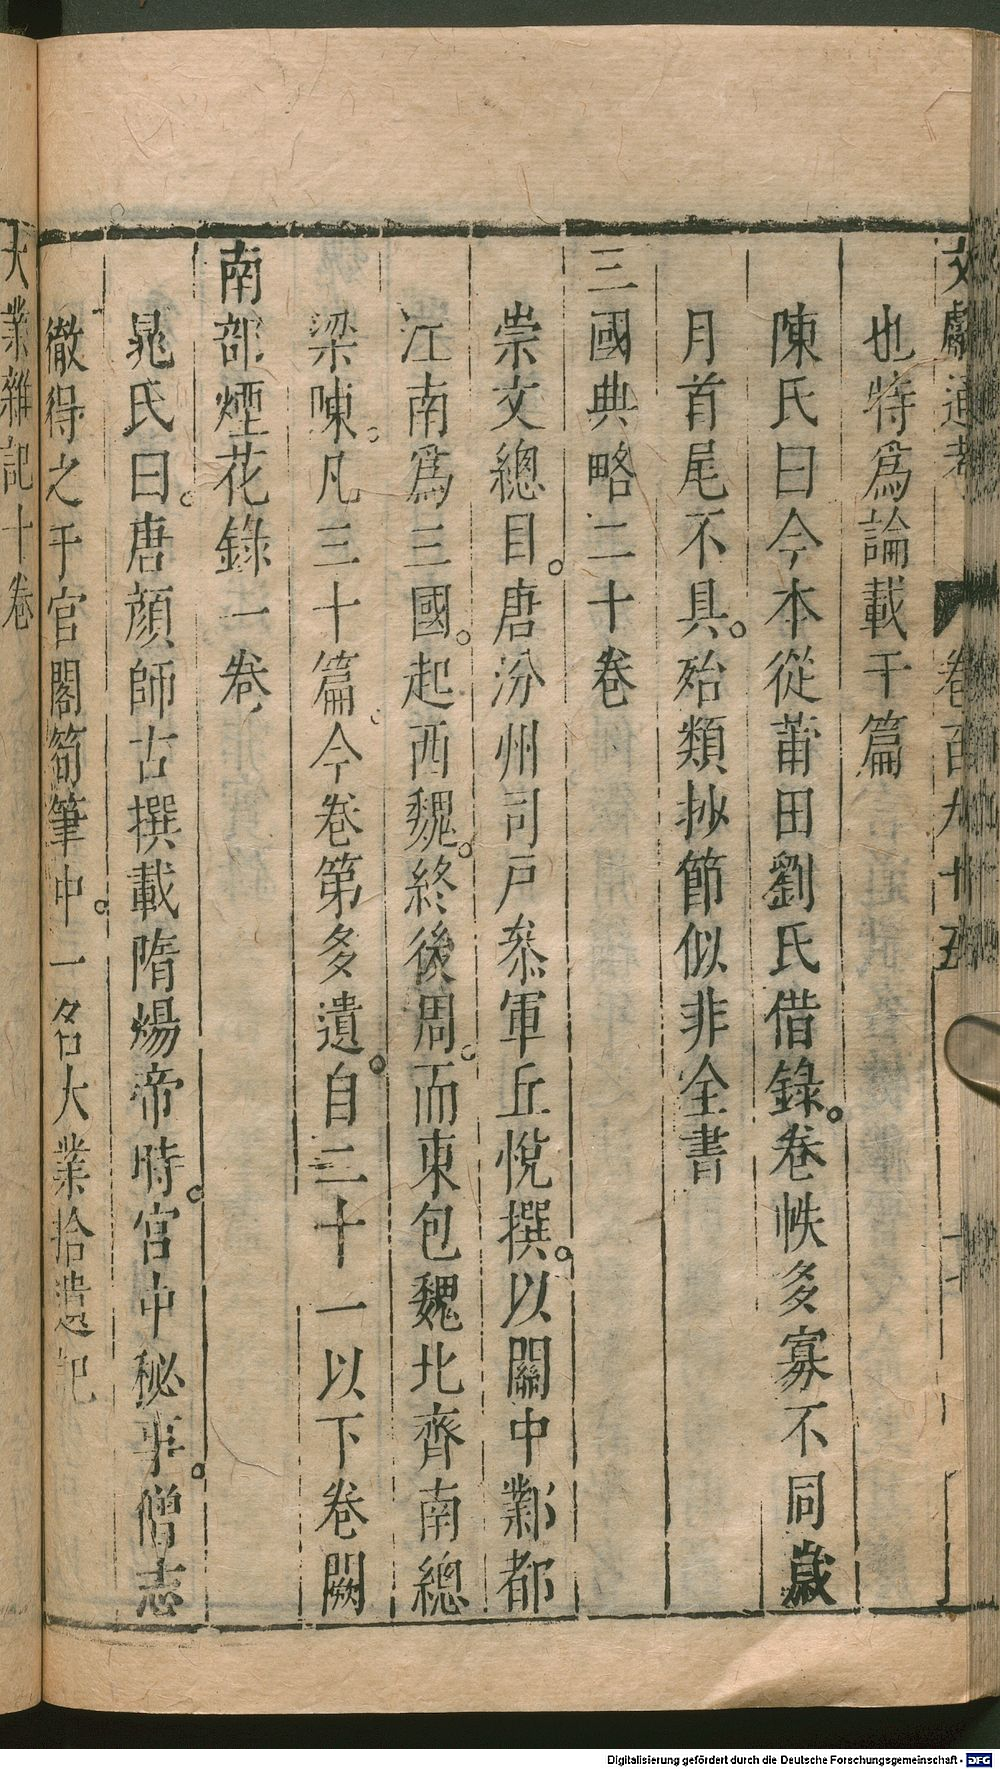 文獻通考 卷百九十五
也特爲論載于篇
陳氏曰今本從莆田劉氏借錄。卷帙多寡不同歲
月首尾不具。殆類抄節似非全書
三國典略二十卷
崇文總目。唐汾州司戶叅軍丘悅撰。以關中鄴都
江南爲三國。起西魏。終後周。而東包魏北齊南總
梁陳。凡三十篇。今卷第多遺。自二十一以下卷闕
南部煙花錄一卷
晁氏曰。唐顔師古撰載隋煬帝時。宮中秘事。僧志
徹得之于官閣笥筆中。一名大業拾遺記
大業雜記十卷
Digitalisierung gefördert durch die Deutsche Forschungsgemeinschaft - DFG